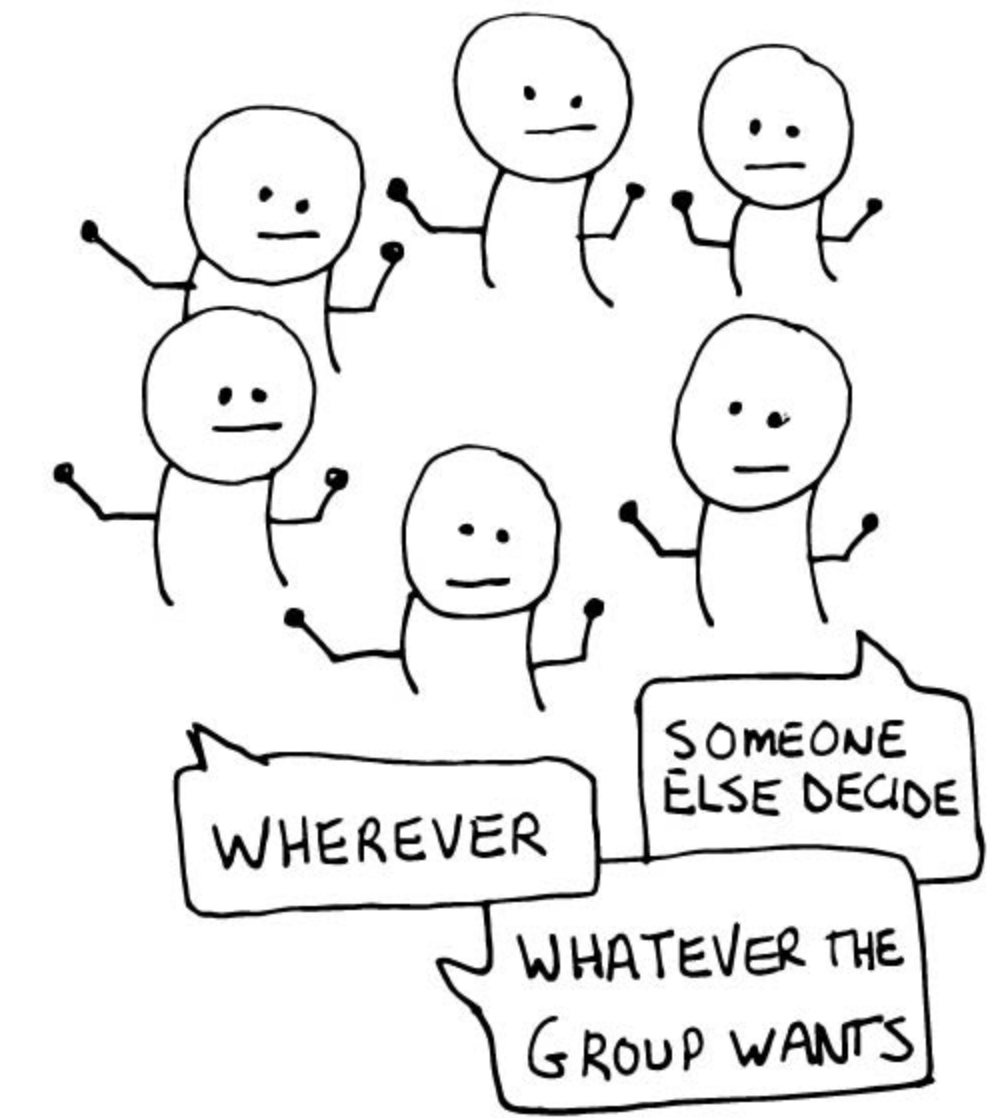 SOMEONE
ELSE DECIDE
WHEREVER
WHATEVER THE
GROUP WANTS